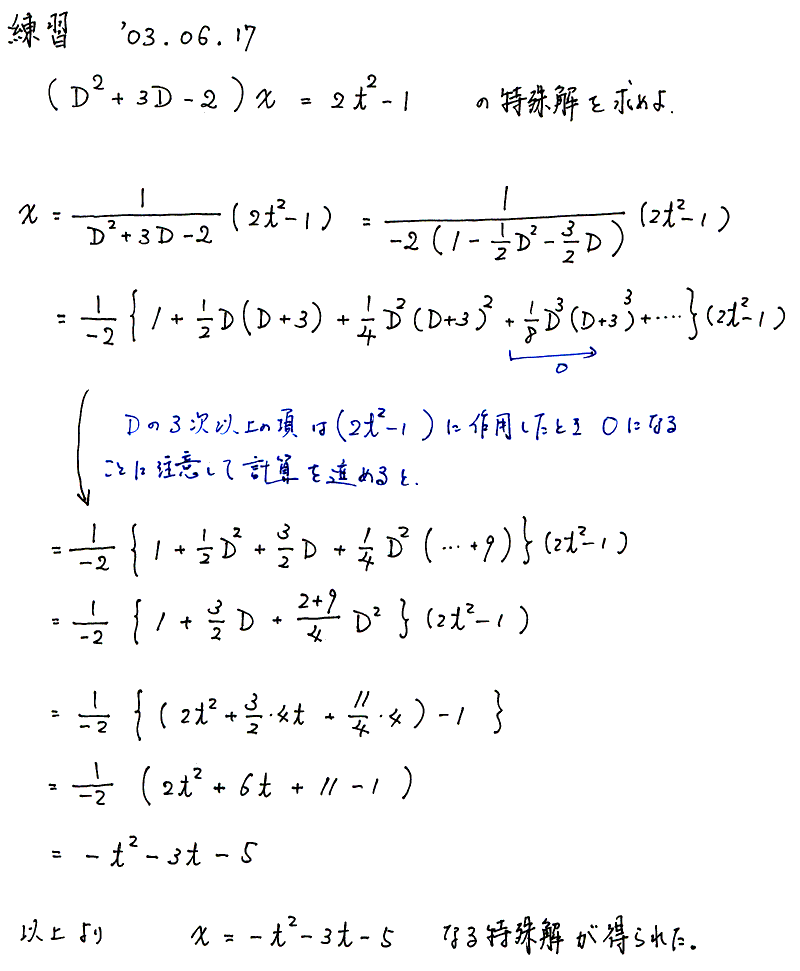 練習 '03.06.17
(D²+3D-2)x = 2t²-1 の特殊解を求めよ.
x = \frac{1}{D²+3D-2}(2t²-1) = \frac{1}{-2(1-\frac{1}{2}D²-\frac{3}{2}D)}(2t²-1)
= \frac{1}{-2}{1+\frac{1}{2}D(D+3)+\frac{1}{4}D²(D+3)²+\frac{1}{8}D³(D+3)³+····}(2t²-1)
0
Dの3次以上の項は(2t²-1)に作用したとき 0になる
ことに注意して計算を進めると.
= \frac{1}{-2}{1+\frac{1}{2}D²+\frac{3}{2}D+\frac{1}{4}D²(…+9)}(2t²-1)
= \frac{1}{-2}{1+\frac{3}{2}D+\frac{2+9}{4}D²}(2t²-1)
= \frac{1}{-2}{(2t²+\frac{3}{2}·4t+\frac{11}{4}·4)-1}
= \frac{1}{-2}(2t²+6t+11-1)
= -t²-3t-5
以上より x = -t²-3t-5 なる特殊解が得られた。